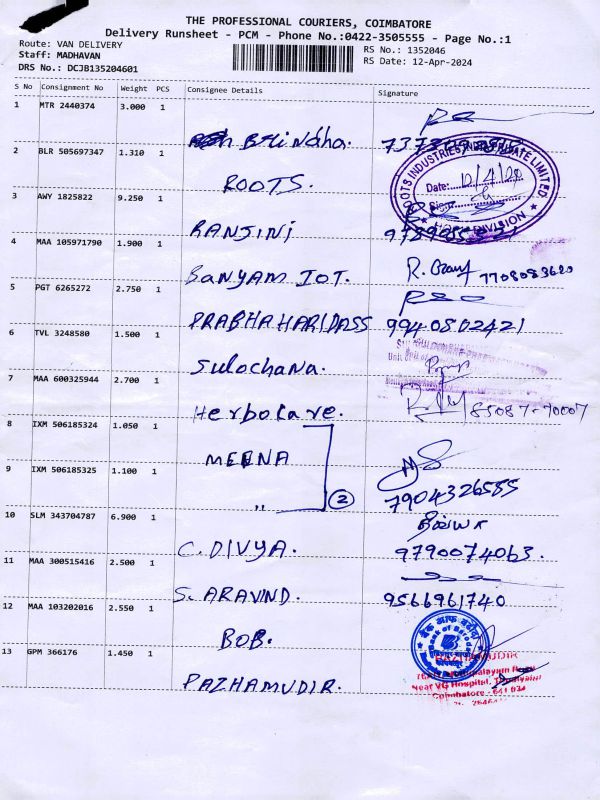 THE PROFESSIONAL COURIERS, COIMBATORE
Delivery Runsheet - PCM - Phone No.:0422-3505555 - Page No.:1
Route: VAN DELIVERY
RS No.: 1352046
Staff: MADHAVAN
RS Date: 12-Apr-2024
DRS No.: DCJB135204601
S No Consignment No Weight PCS Consignee Details Signature
1 MTR 2440374 3.000 1
Brindha.
2 BLR 505697347 1.310 1
ROOTS.
ROOTS INDUSTRIES INDIA PRIVATE LIMITED
Date: 12/4/20
Sign:
DIVISION
3 AWY 1825822 9.250 1
RANJINI
4 MAA 105971790 1.900 1
BANYAM IOT.
7708083620
5 PGT 6265272 2.750 1
PRABHA HARIDASS 9940802421
6 TVL 3248580 1.500 1
Sulochana.
7 MAA 600325944 2.700 1
Herbocare. 85087-70007
8 IXM 506185324 1.050 1
MEENA
9 IXM 506185325 1.100 1
" 2
7904326585
10 SLM 343704787 6.900 1
திவ்யா
C. DIVYA. 9790074063.
11 MAA 300515416 2.500 1
S. ARAVIND. 9566961740
12 MAA 103202016 2.550 1
BOB.
Bank of Baroda
13 GPM 366176 1.450 1
PAZHAMUDIR.
PAZHAMUDIR
Near VG Hospital,
Coimbatore - 641 034